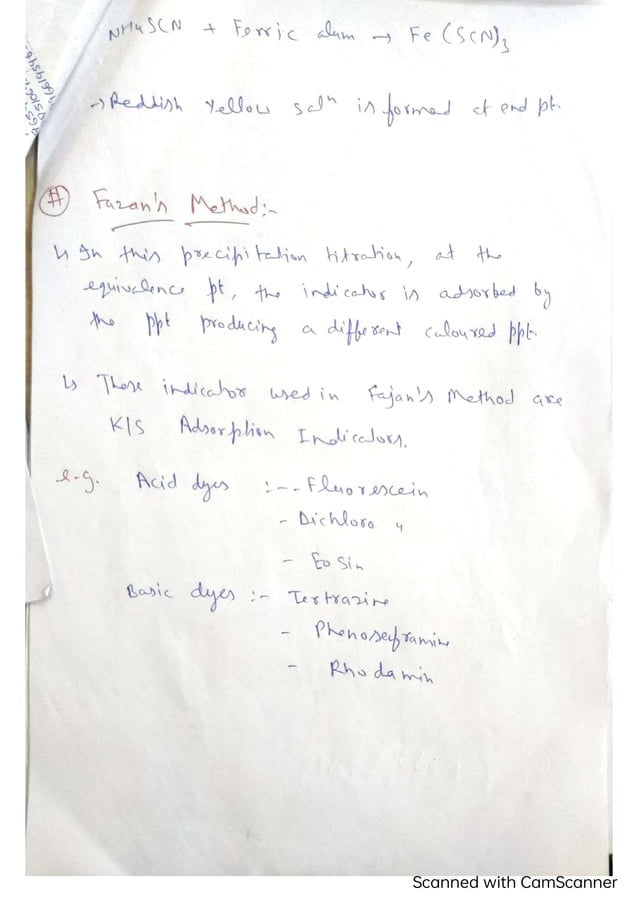 NH4SCN + Ferric alum → Fe(SCN)3
→ Reddish Yellow solⁿ is formed at end pt.
# Fazan's Method:-
↳ In this precipitation titration, at the
equivalence pt, the indicator is adsorbed by
the ppt producing a different coloured ppt.
↳ These indicator used in Fajan's Method are
K/S Adsorption Indicators.
e.g. Acid dyes :-- Fluorescein
- Dichloro "
- Eosin
Basic dyes :- Tertrazine
- Phenoseframine
- Rhodamin
Scanned with CamScanner